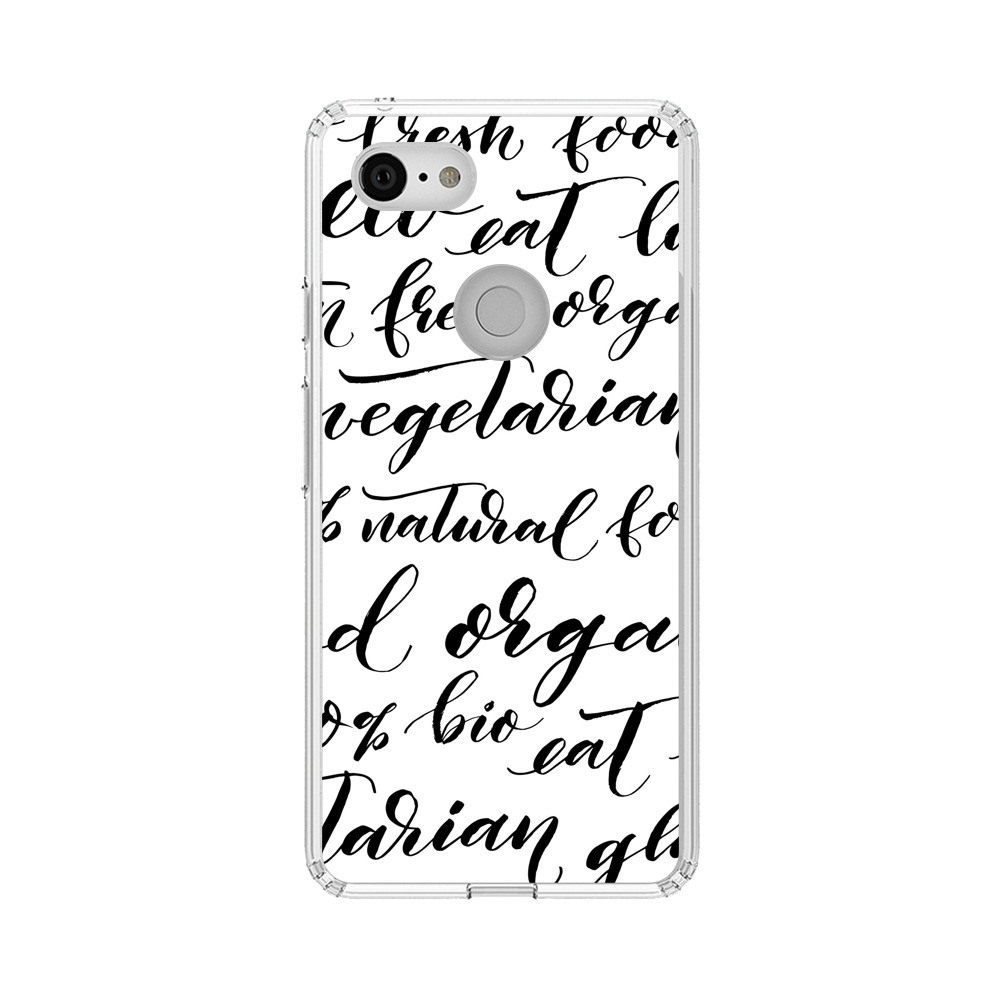 fresh food
eat
free orga
vegetarian
% natural fo
d orga
0% bio eat
tarian gl